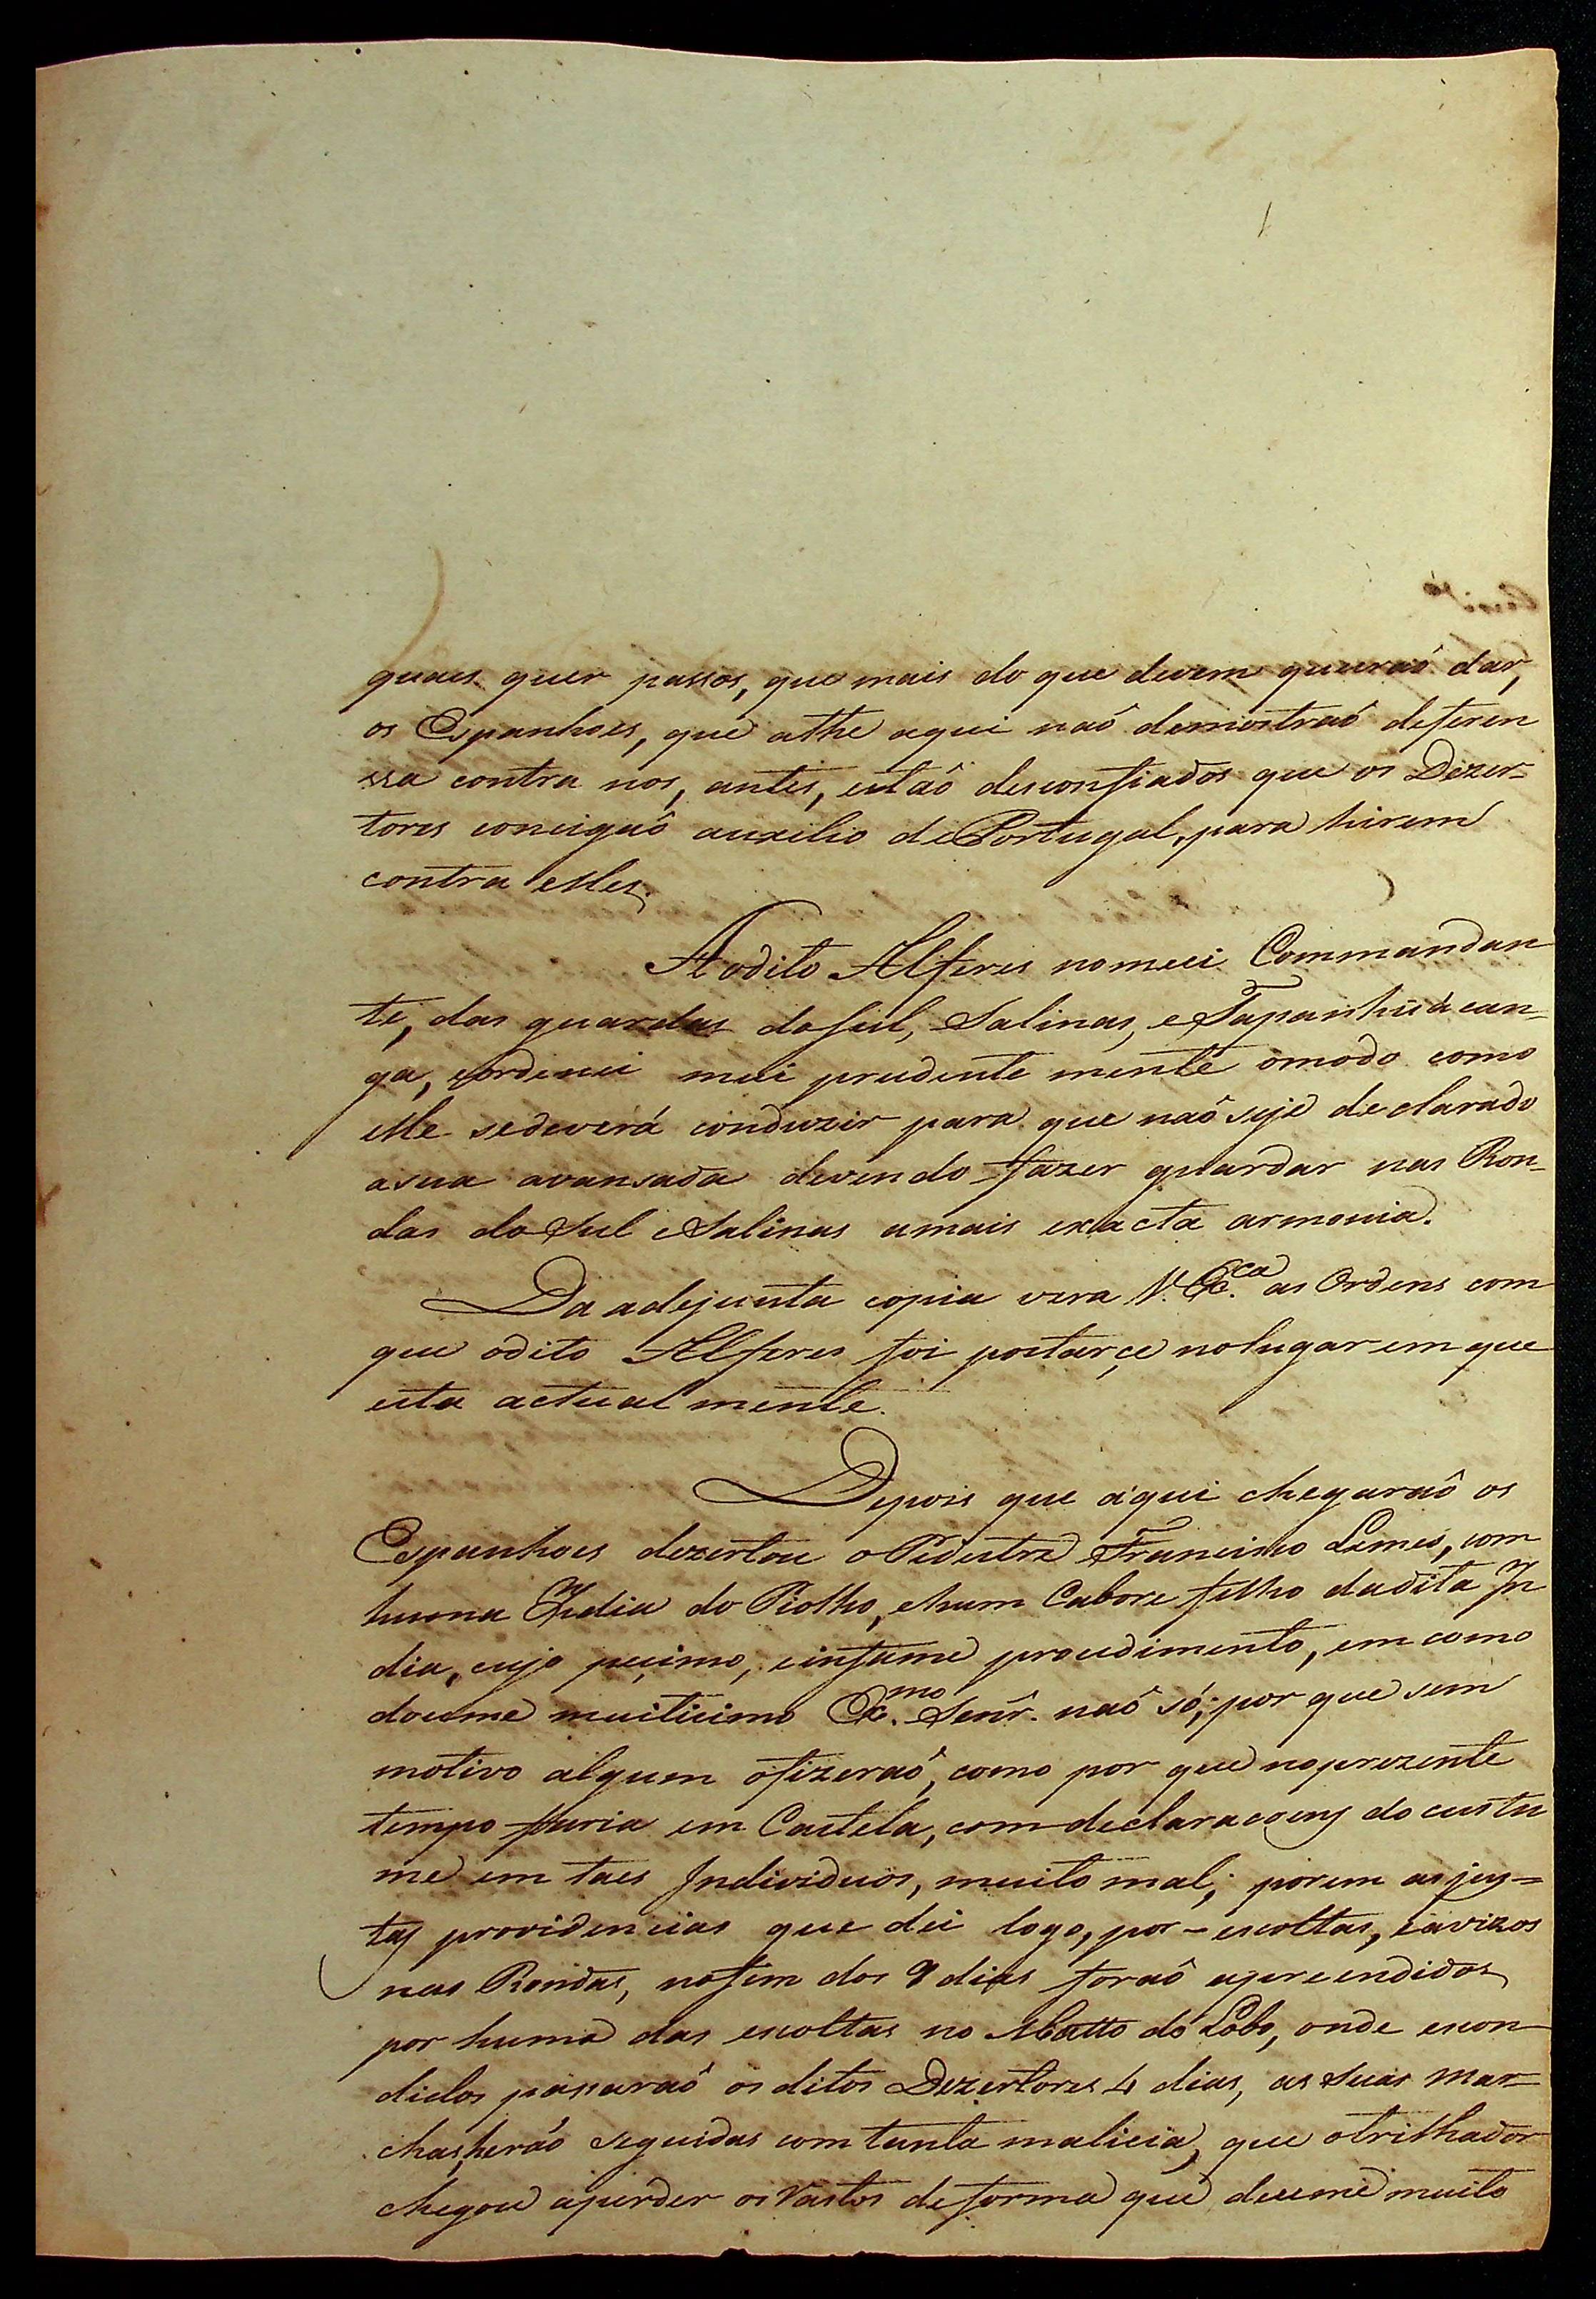 quaes quer passos, que mais do que devem queiraõ dar,
os Espanhoes, que athe aqui naõ demostraõ deferen
ssa contra nos, antes, estaõ desconfiados que os Dezer-
tores consigaõ auxilio de Portugal, para hirem
contra elles.
Ao dito Alferes nomeei Commandan
te, das guardas do Sul, Salinas, e Tapanhúacan-
ga, e ordenei mui prudente mente o modo como
elle se deverá conduzir para que naõ seje declarado
a sua avansada devendo fazer guardar nas Ron-
das do Sul e Salinas a mais exacta armonia.
Da adejunta copia vera V. Ex.ca as Ordens com
que o dito Alferes foi postarçe no lugar em que
esta actual mente.
Depois que aqui chegaraõ os
Espanhoes dezertou o Pedestre Francisco Lemes, com
huma India do Piolho, e hum Cabore filho da dita In
dia, cujo peçimo, e infame procedimento, em como
doume muiticimo Ex.mo Senr. naõ só; por que sem
motivo algum o fizeraõ, como por que no prezente
tempo faria em Castela, com declaracoens do custu
me em taes Individuos, muito mal; porem as jus=
tas providencias que dei logo, por escoltas, e avizos
nas Rondas, no fim dos 9 dias foraõ apreendidos
por huma das escoltas no Matto do Lobo, onde escon
didos passaraõ os ditos Dezertores 4 dias, as suas mar=
chas heráo seguidas com tanta malicia, que o trilhador
chegou a perder os Vastos de forma que deume muito